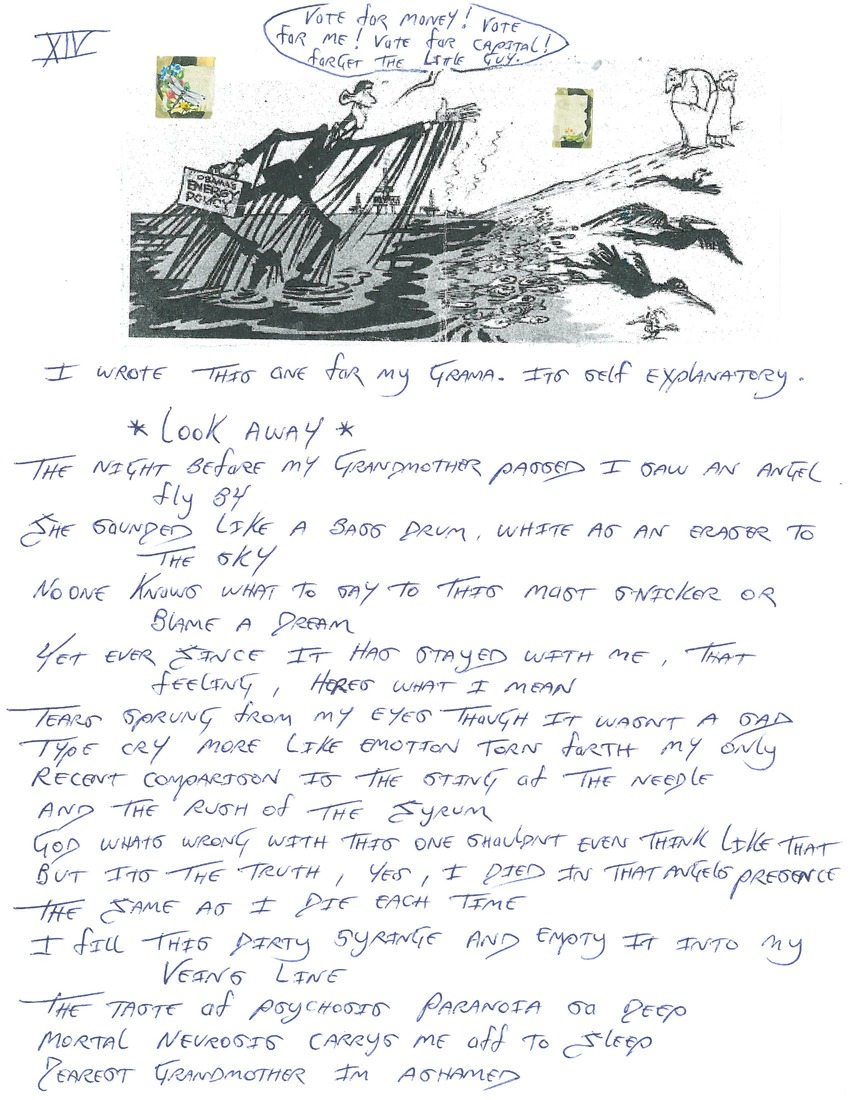 XIV
VOTE for MONEY! VOTE
for ME! VOTE for CAPITAL!
forGET THE LITTLE GUY.
OBAMA'S
ENERGY
POLICY
I WROTE THIS ONE for my GRAMA. ITS SELf EXPLANATORY.
* LOOK AWAY *
THE NIGHT BEfORE MY GRANDMOTHER PASSED I SAW AN ANGEL
fly BY
SHE SOUNDED LIKE A BASS DRUM, WHITE AS AN ERASER TO
THE SKY
NOONE KNOWS WHAT TO SAY TO THIS MOST SNICKER OR
BLAME A DREAM
YET EVER SINCE IT HAS STAYED WITH ME, THAT
fEELING, HERES WHAT I MEAN
TEARS SPRUNG from MY EYES THOUGH IT WASNT A SAD
TYPE CRY MORE LIKE EMOTION TORN fORTH MY ONLY
RECENT COMPARISON IS THE STING Of THE NEEDLE
AND THE RUSH Of THE SYRUM
GOD WHATS WRONG WITH THIS ONE SHOULDNT EVEN THINK LIKE THAT
BUT ITS THE TRUTH, YES, I DIED IN THAT ANGELS PRESENCE
THE SAME AS I DIE EACH TIME
I fILL THIS DIRTY SYRINGE AND EMPTY IT INTO MY
VEINS LINE
THE TASTE Of PSYCHOSIS PARANOIA SO DEEP
MORTAL NEUROSIS CARRYS ME Off TO SLEEP
DEAREST GRANDMOTHER IM ASHAMED